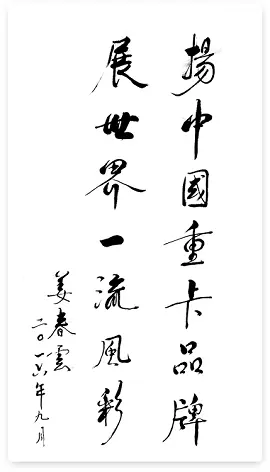 揚中國重卡品牌
展世界一流風彩
姜春雲
二〇一六年九月